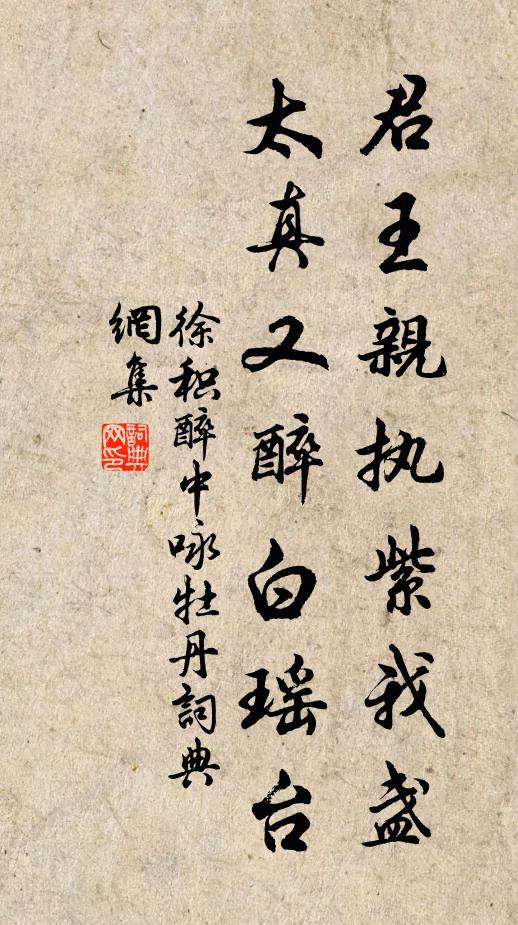 君王親执紫我盏
太真又醉白瑶台
徐积醉中咏牡丹詞典
網集
詞典
网印